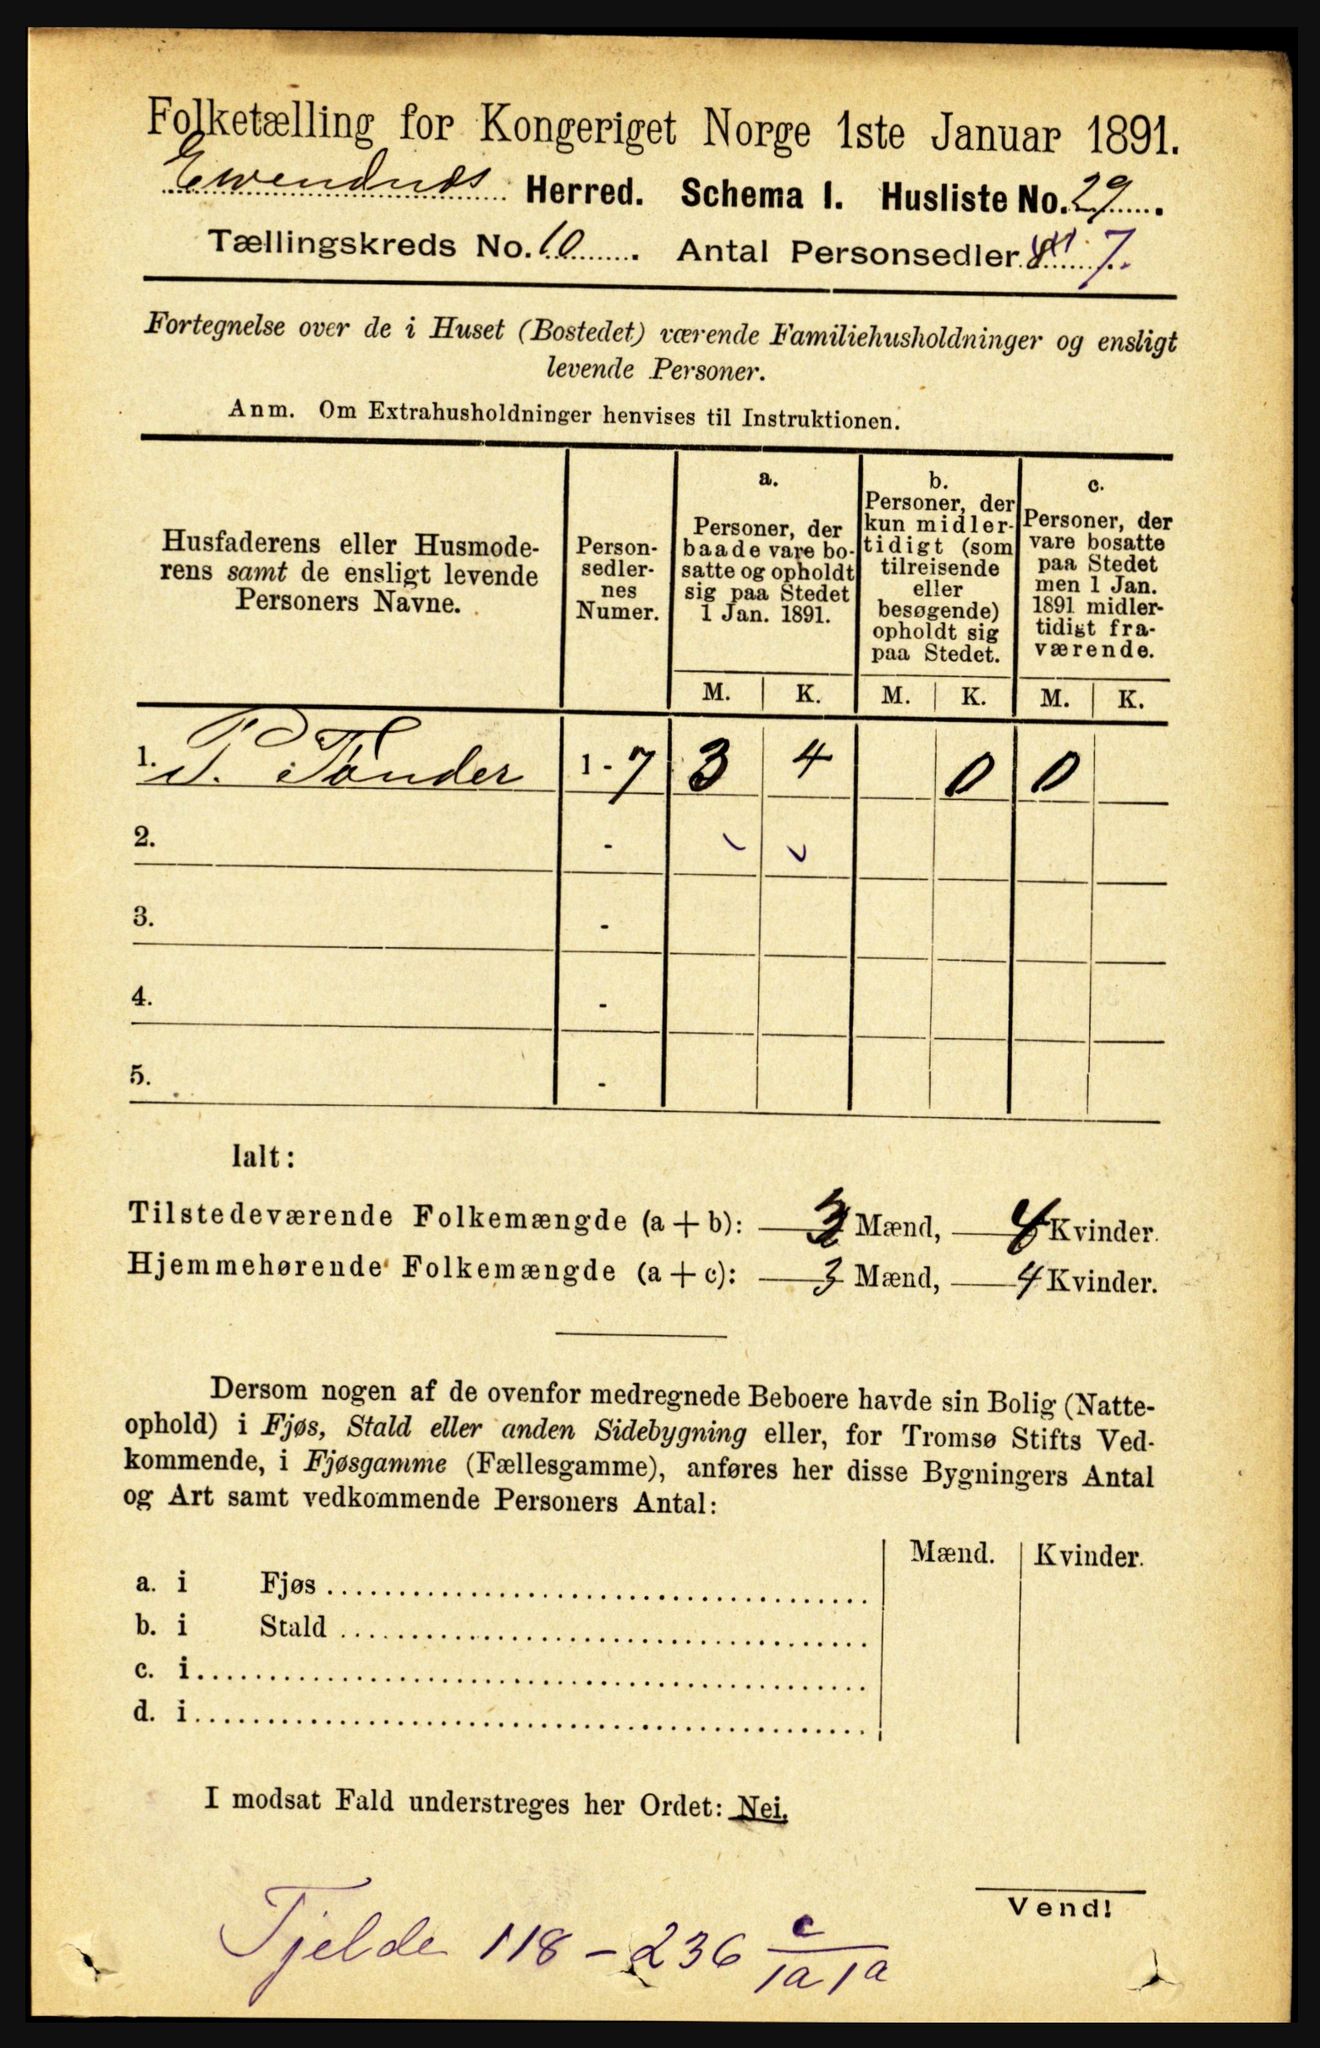 Folketælling for Kongeriget Norge 1ste Januar 1891.
Evendnæs Herred. Schema I. Husliste No. 29.
Tællingskreds No. 10. Antal Personsedler 7.
Fortegnelse over de i Huset (Bostedet) værende Familiehusholdninger og ensligt
levende Personer.
Anm. Om Extrahusholdninger henvises til Instruktionen.
Husfaderens eller Husmode-
rens samt de ensligt levende
Personers Navne.
Person-
sedler-
nes
Numer.
a.
Personer, der
baade vare bo-
satte og opholdt
sig paa Stedet
1 Jan. 1891.
b.
Personer, der
kun midler-
tidigt (som
tilreisende
eller
besøgende)
opholdt sig
paa Stedet.
c.
Personer, der
vare bosatte
paa Stedet
men 1 Jan.
1891 midler-
tidigt fra-
værende.
M. K. M. K. M. K.
1. P. Tønder 1 - 7 3 4 0 0
2. -
3. -
4. -
5. -
Ialt:
Tilstedeværende Folkemængde (a + b): 3 Mænd, 4 Kvinder.
Hjemmehørende Folkemængde (a + c): 3 Mænd, 4 Kvinder.
Dersom nogen af de ovenfor medregnede Beboere havde sin Bolig (Natte-
ophold) i Fjøs, Stald eller anden Sidebygning eller, for Tromsø Stifts Ved-
kommende, i Fjøsgamme (Fællesgamme), anføres her disse Bygningers Antal
og Art samt vedkommende Personers Antal:
Mænd. Kvinder.
a. i Fjøs
b. i Stald
c. i
d. i
I modsat Fald understreges her Ordet: Nei.
Vend!
Tjelde 118 - 236 c/1a 1a